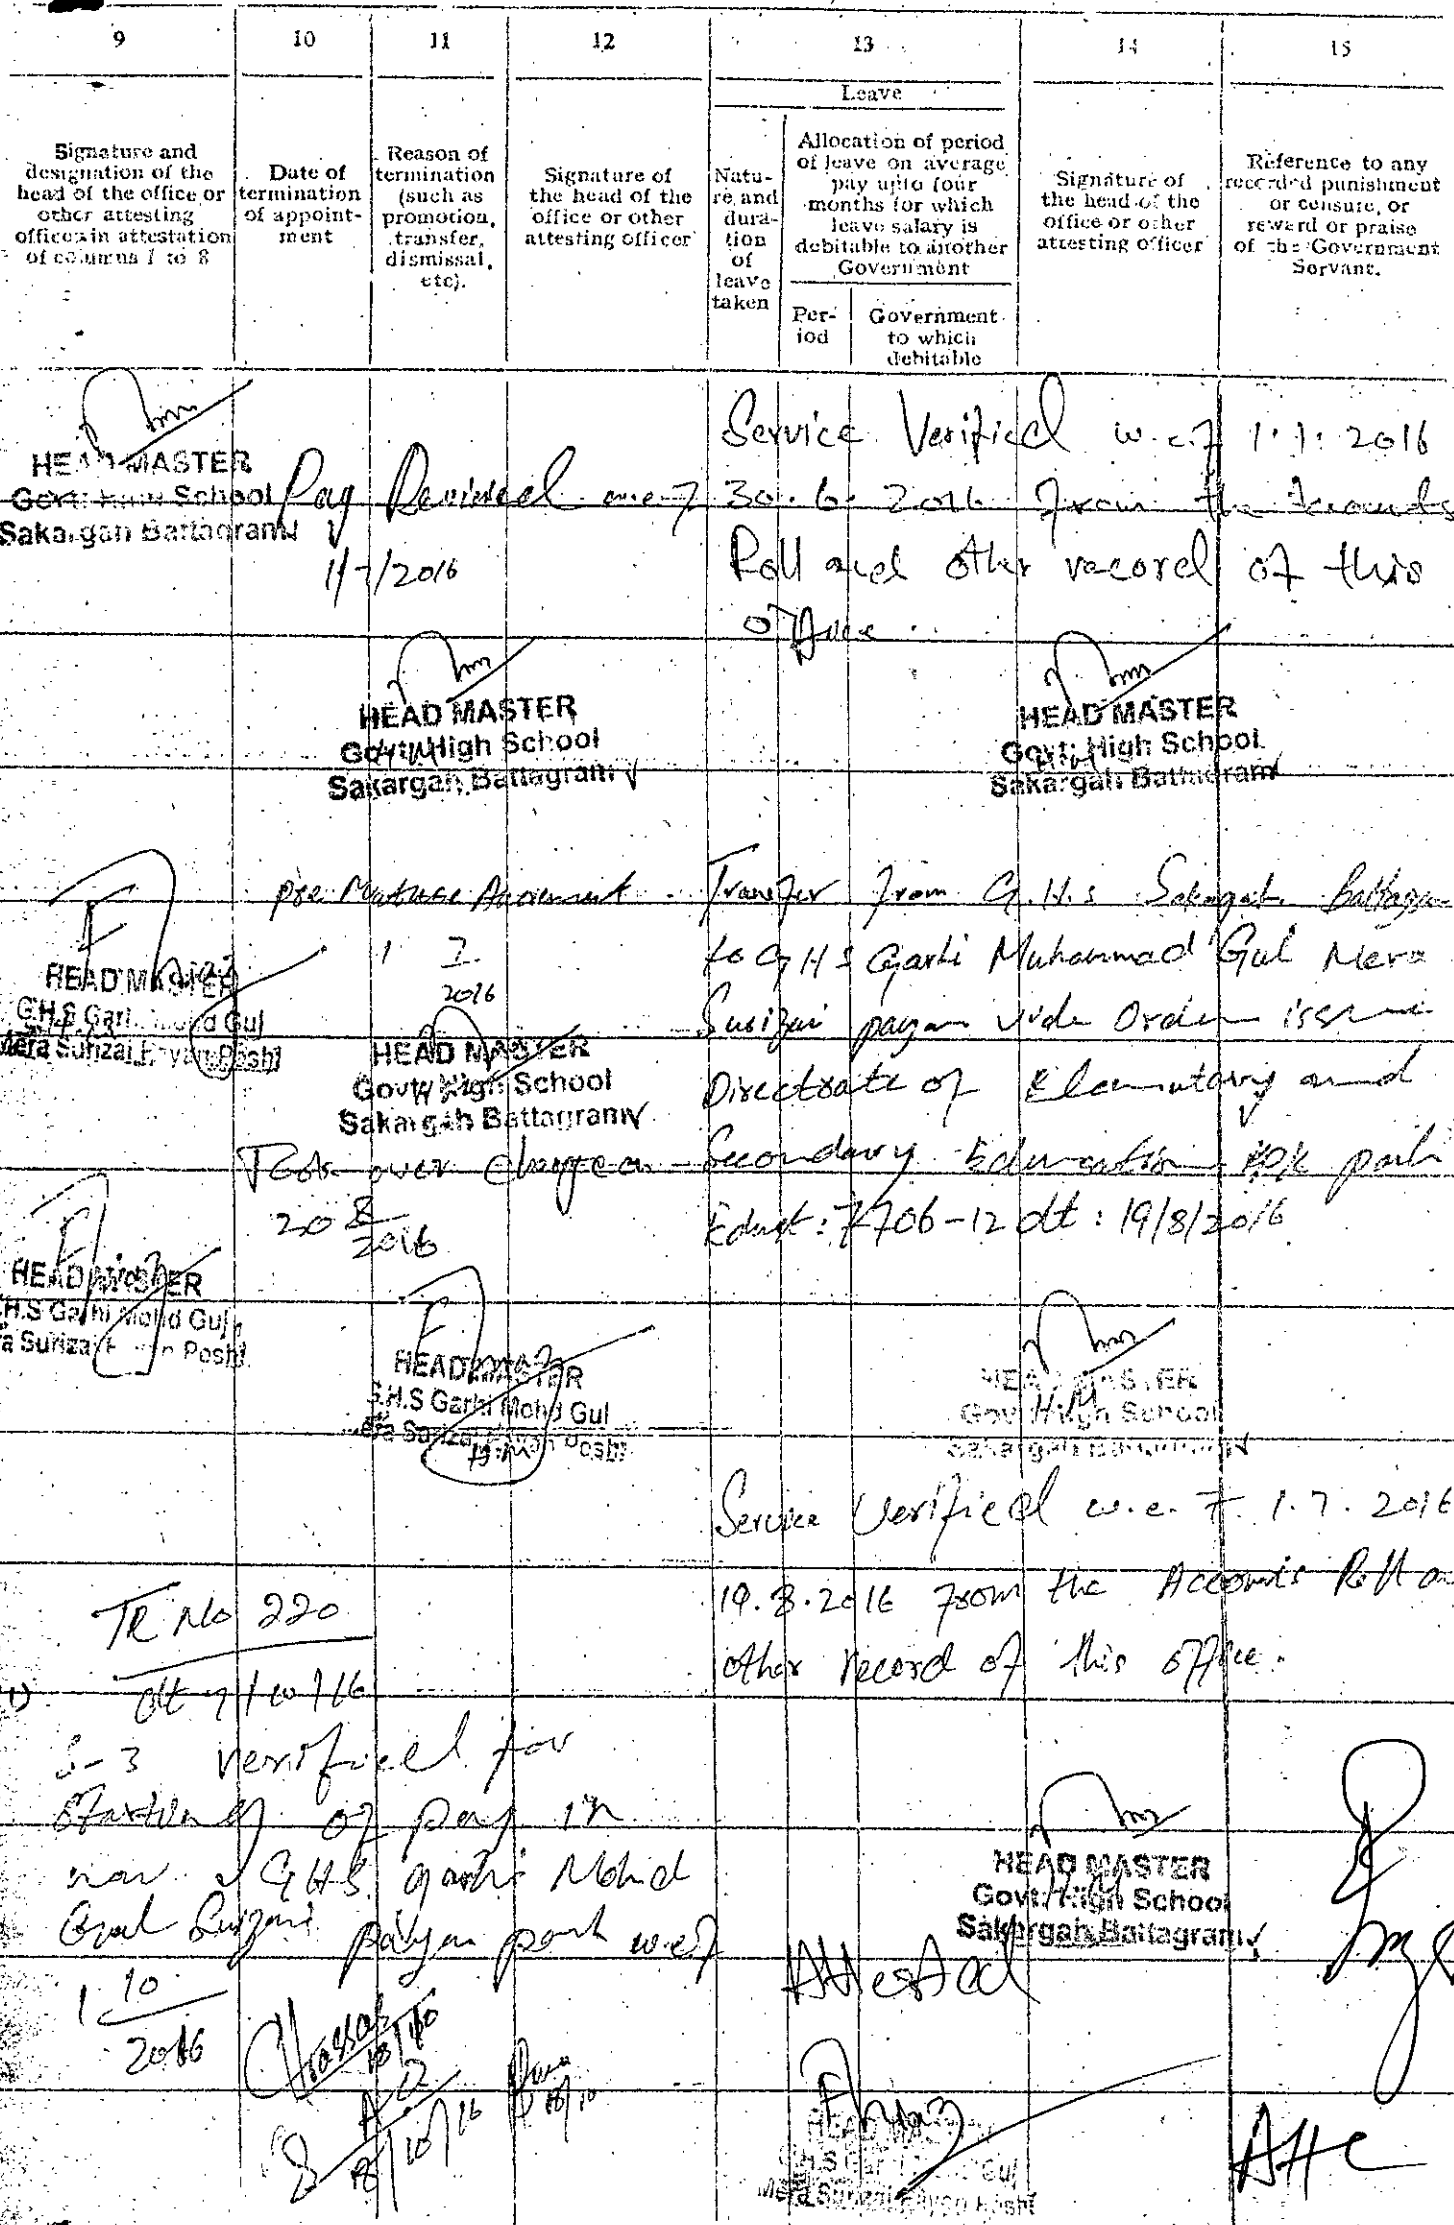 9 10 11 12 13 14 15
Leave
Signature and
designation of the
head of the office or
other attesting
officer in attestation
of columns 1 to 8
Date of
termination
of appoint-
ment
Reason of
termination
(such as
promotion,
transfer,
dismissal,
etc).
Signature of
the head of the
office or other
attesting officer
Natu-
re and
dura-
tion
of
leave
taken
Allocation of period
of leave on average
pay upto four
months for which
leave salary is
debitable to another
Government
Per-
iod
Government
to which
debitable
Signature of
the head of the
office or other
attesting officer
Reference to any
recorded punishment
or censure, or
reward or praise
of the Government
Servant.
HEAD MASTER
Govt: High School
Sakargah Battagram
Pay Revised w.e.f
1/7/2016
Service Verified w.e.f 1.1.2016
30.6.2016 from the Accounts
Roll and other record of this
office
HEAD MASTER
Govt: High School
Sakargah Battagram
HEAD MASTER
Govt: High School
Sakargah Battagram
HEAD MASTER
G.H.S Garhi Mohd Gul
Mera Surizai Payan Pesh:
Pre Mature
1 7
2016
HEAD MASTER
Govt: High School
Sakargah Battagram
Transfer from G.H.S Sakargah
to GHS Garhi Muhammad Gul Mera
Surizai payan vide Order issue
Directorate of Elementary and
Secondary Education KPK
Endst: 7706-12 dt: 19/8/2016
Took over charge on
20 8
2016
HEAD MASTER
G.H.S Garhi Mohd Gul
Mera Surizai Payan Pesh:
HEAD MASTER
G.H.S Garhi Mohd Gul
Mera Surizai Payan Pesh:
HEAD MASTER
Govt: High School
Sakargah Battagram
Service Verified w.e.f 1.7.2016
19.8.2016 from the Accounts Roll an
other record of this office.
TR No 220
dt 7/10/16
S-3 verified for
starting of pay in
GHS garhi Mohd
Gul Surizai payan w.e.f
1 10
2016
18/10/16
18/10
HEAD MASTER
Govt: High School
Sakargah Battagram
Attested
HEAD MASTER
G.H.S Garhi Mohd Gul
Mera Surizai Payan Pesh:
Atte